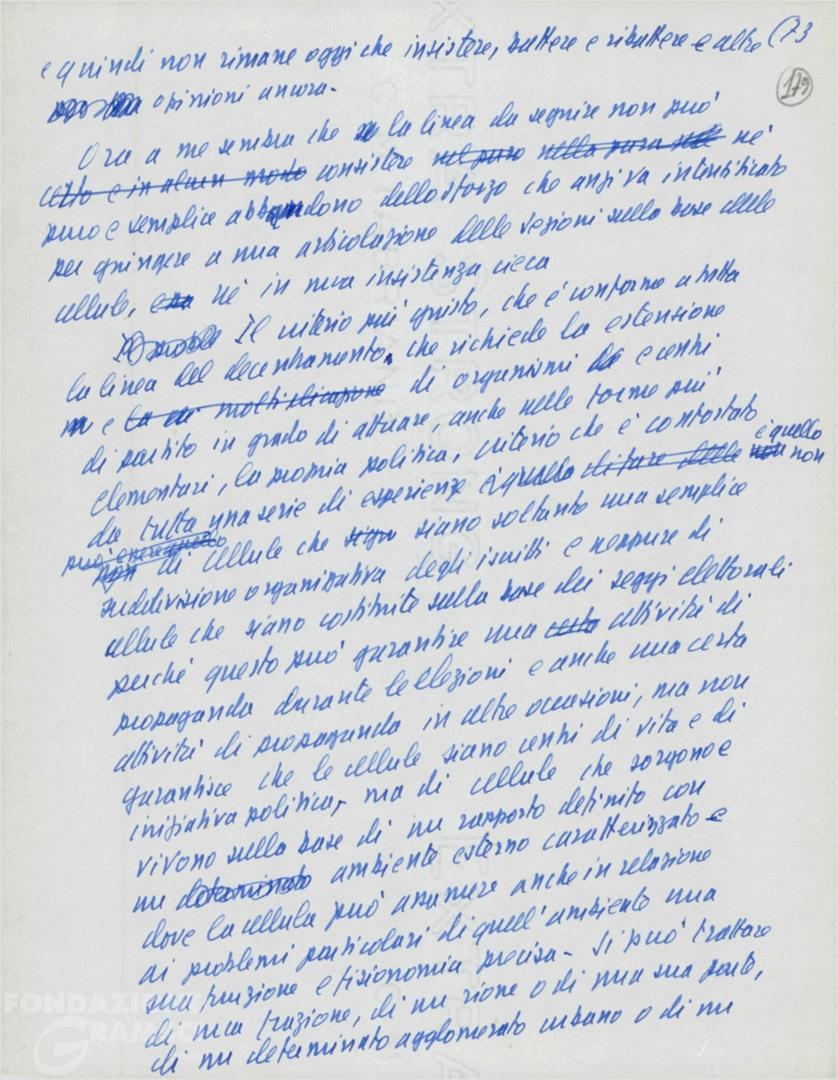 e quindi non rimane oggi che insistere, battere e ribattere e altre (73
179
opinioni ancora.
Ora a me sembra che la linea da seguire non può
certo e in alcun modo consistere nel puro nella pura né
puro e semplice abbandono dello sforzo che anzi va intensificato
per giungere a una articolazione delle sezioni sulla base delle
cellule, né in una insistenza cieca
Il Il criterio più giusto, che è conforme a tutta
la linea del decentramento, che richiede la estensione
e la moltiplicazione di organismi e centri
di partito in grado di attuare, anche nelle forme più
elementari, la propria politica, criterio che è confortato
da tutta una serie di esperienze è quello di fare delle non è quello non
può essere quello
di cellule che siano soltanto una semplice
suddivisione organizzativa degli iscritti e neppure di
cellule che siano costituite sulla base dei seggi elettorali
perché questo può garantire una certa attività di
propaganda durante le elezioni e anche una certa
attività di propaganda in altre occasioni, ma non
garantisce che le cellule siano centri di vita e di
iniziativa politica, ma di cellule che sorgono e
vivono sulla base di un rapporto definito con
un determinato ambiente esterno caratterizzato e
dove la cellula può assumere anche in relazione
ai problemi particolari di quell'ambiente una
sua funzione e fisionomia precisa. Si può trattare
di una frazione, di un rione o di una sua parte,
di un determinato agglomerato urbano o di un
FONDAZIONE
GRAMSCI